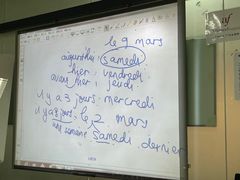 le 9 mars
aujourd'hui: samedi
hier: vendredi
avant hier: jeudi
il y a 3 jours: mercredi
il y a 8 jours: le 2 mars
une semaine samedi dernier